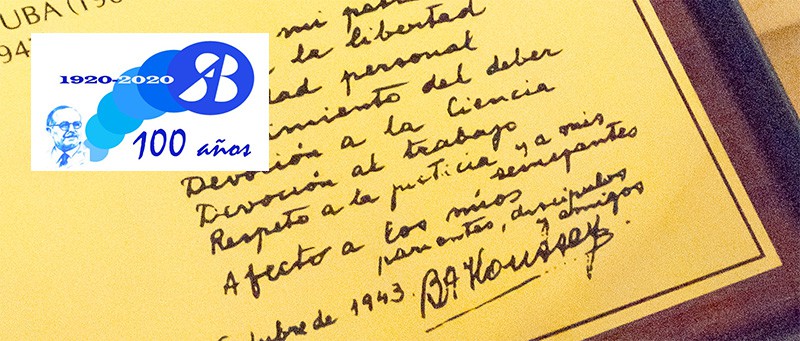 UBA (19
94
1920-2020
100 años
mi
la libertad
dad personal
imiento del deber
Devoción a la Ciencia
Devoción al trabajo
Respeto a la justicia y a mis
semejantes
Afecto a los míos
parientes, discípulos
y amigos
de 1943. BAHoussay